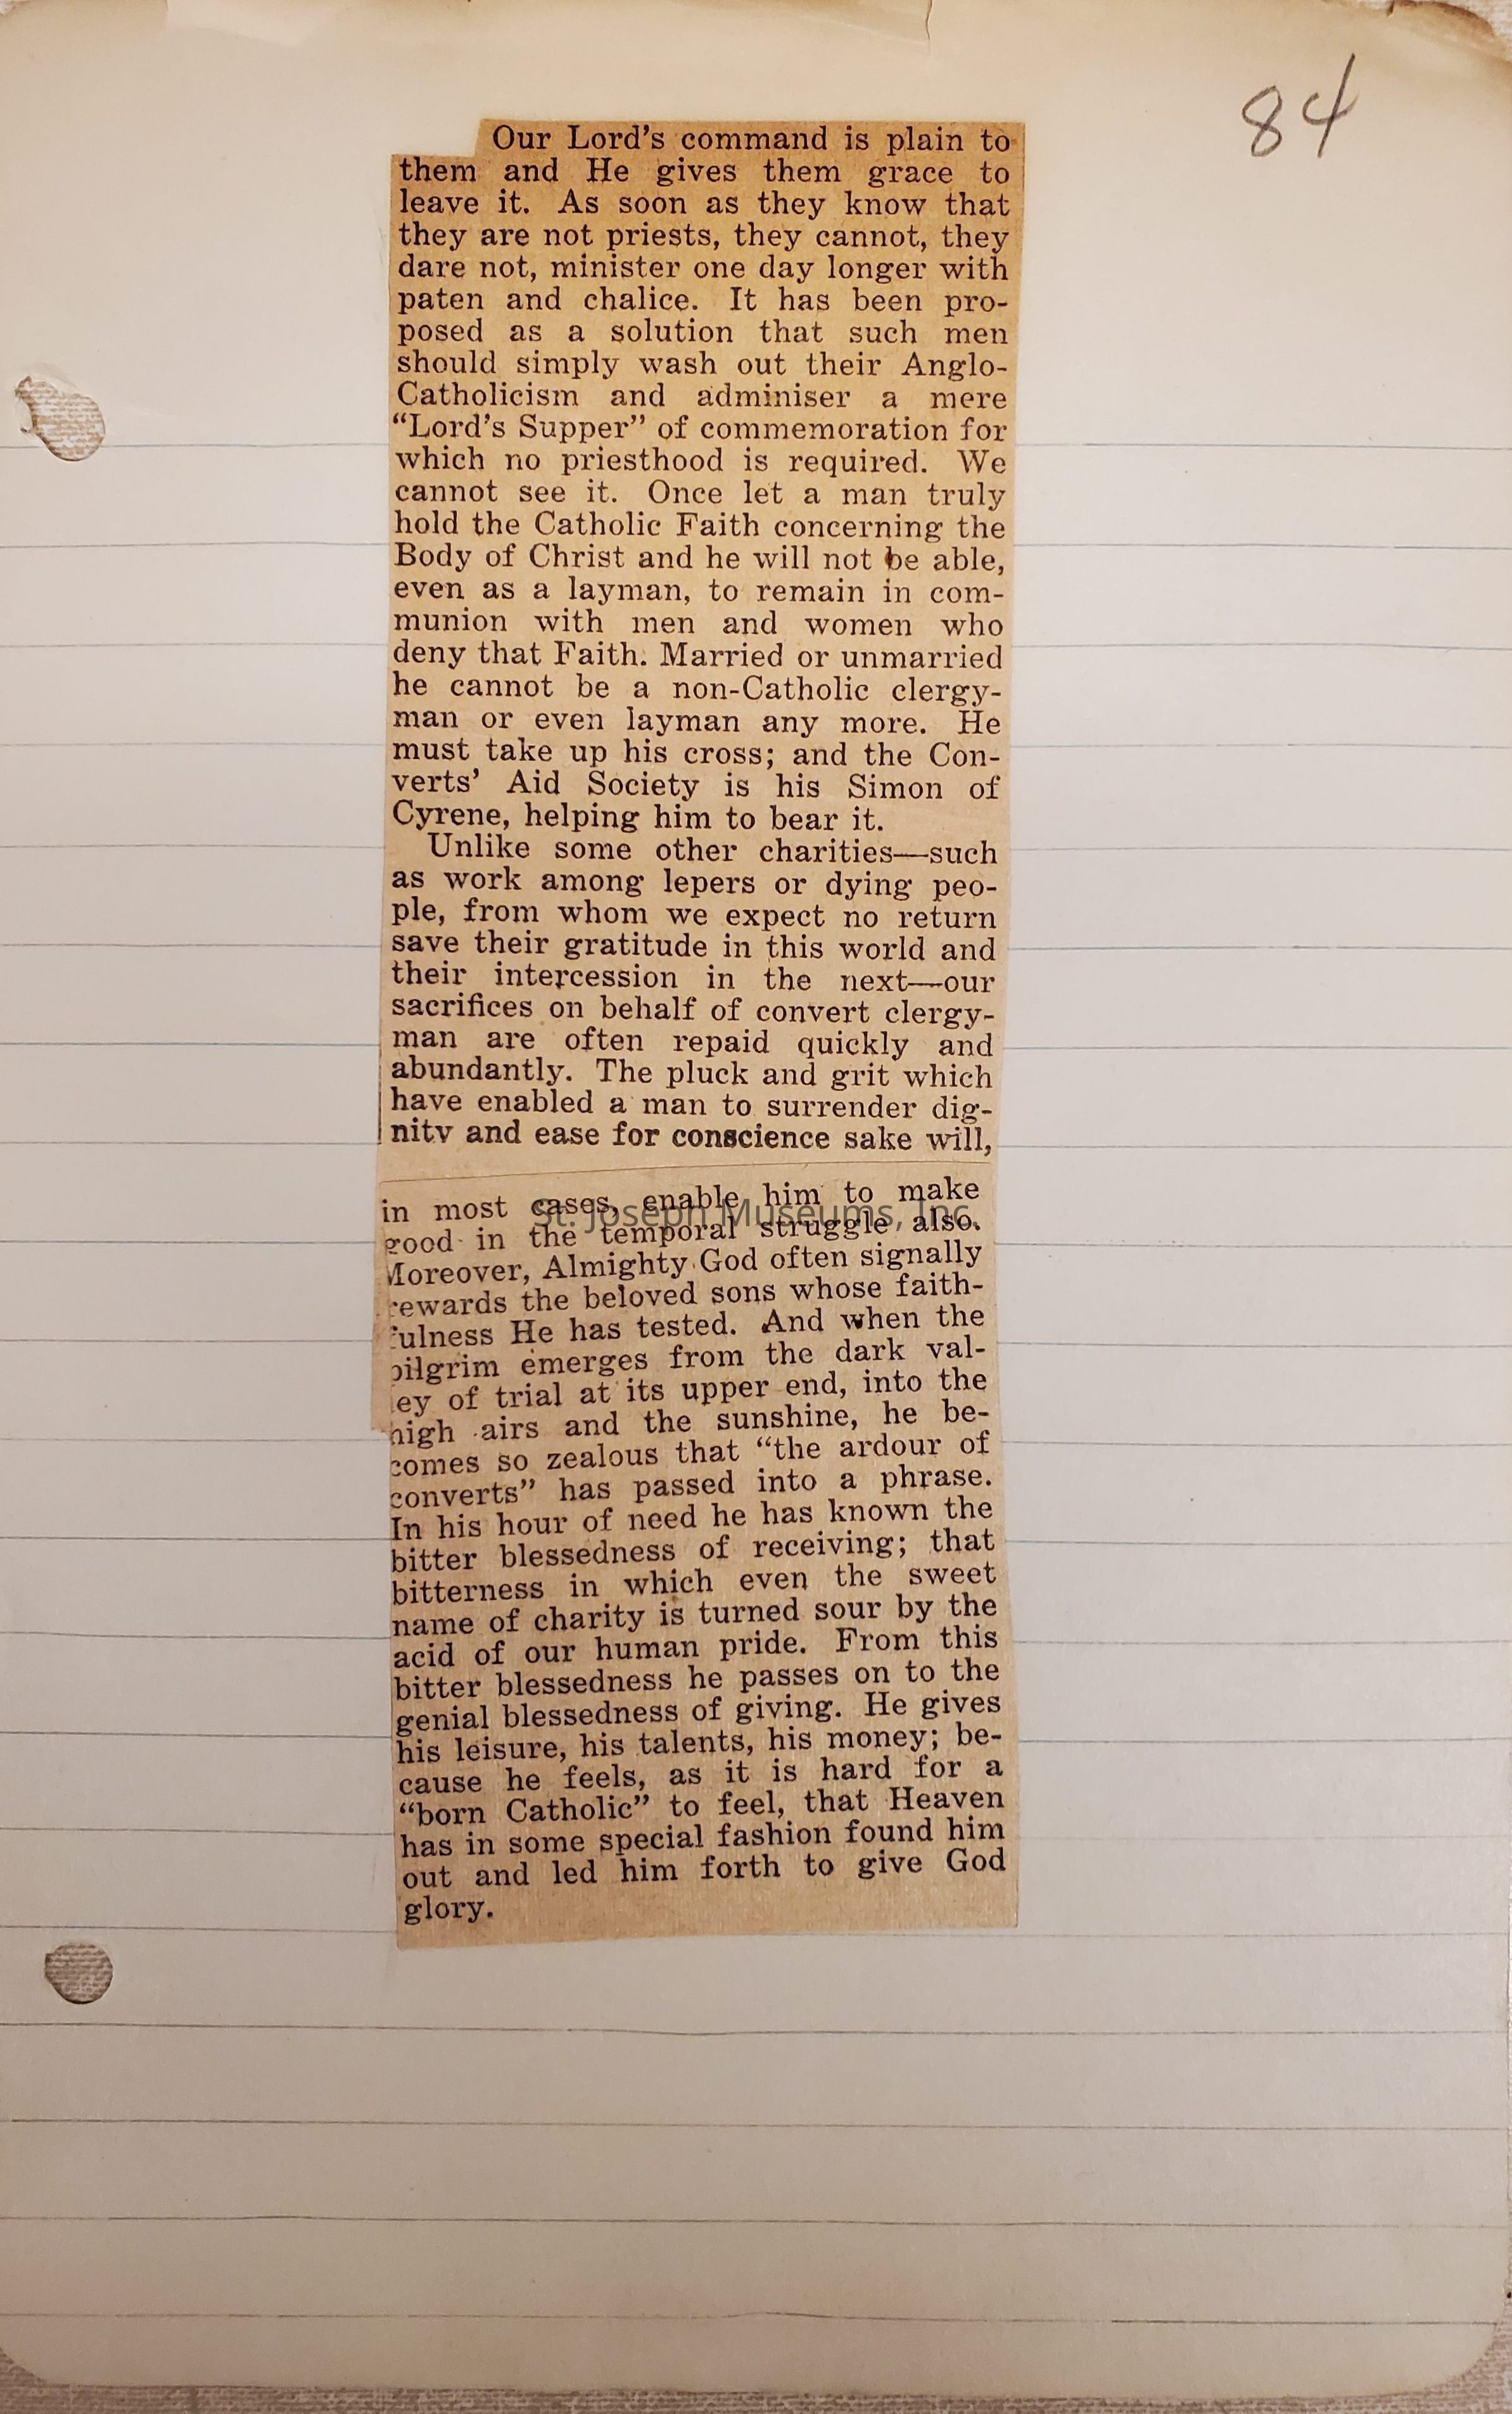 84
Our Lord's command is plain to
them and He gives them grace to
leave it. As soon as they know that
they are not priests, they cannot, they
dare not, minister one day longer with
paten and chalice. It has been pro-
posed as a solution that such men
should simply wash out their Anglo-
Catholicism and adminiser a mere
“Lord's Supper” of commemoration for
which no priesthood is required. We
cannot see it. Once let a man truly
hold the Catholic Faith concerning the
Body of Christ and he will not be able,
even as a layman, to remain in com-
munion with men and women who
deny that Faith. Married or unmarried
he cannot be a non-Catholic clergy-
man or even layman any more. He
must take up his cross; and the Con-
verts' Aid Society is his Simon of
Cyrene, helping him to bear it.
Unlike some other charities—such
as work among lepers or dying peo-
ple, from whom we expect no return
save their gratitude in this world and
their intercession in the next—our
sacrifices on behalf of convert clergy-
man are often repaid quickly and
abundantly. The pluck and grit which
have enabled a man to surrender dig-
nity and ease for conscience sake will,
in most cases, enable him to make
St. Joseph Museums, Inc.
good in the temporal struggle also.
Moreover, Almighty God often signally
rewards the beloved sons whose faith-
fulness He has tested. And when the
pilgrim emerges from the dark val-
ley of trial at its upper end, into the
high airs and the sunshine, he be-
comes so zealous that “the ardour of
converts” has passed into a phrase.
In his hour of need he has known the
bitter blessedness of receiving; that
bitterness in which even the sweet
name of charity is turned sour by the
acid of our human pride. From this
bitter blessedness he passes on to the
genial blessedness of giving. He gives
his leisure, his talents, his money; be-
cause he feels, as it is hard for a
“born Catholic” to feel, that Heaven
has in some special fashion found him
out and led him forth to give God
glory.